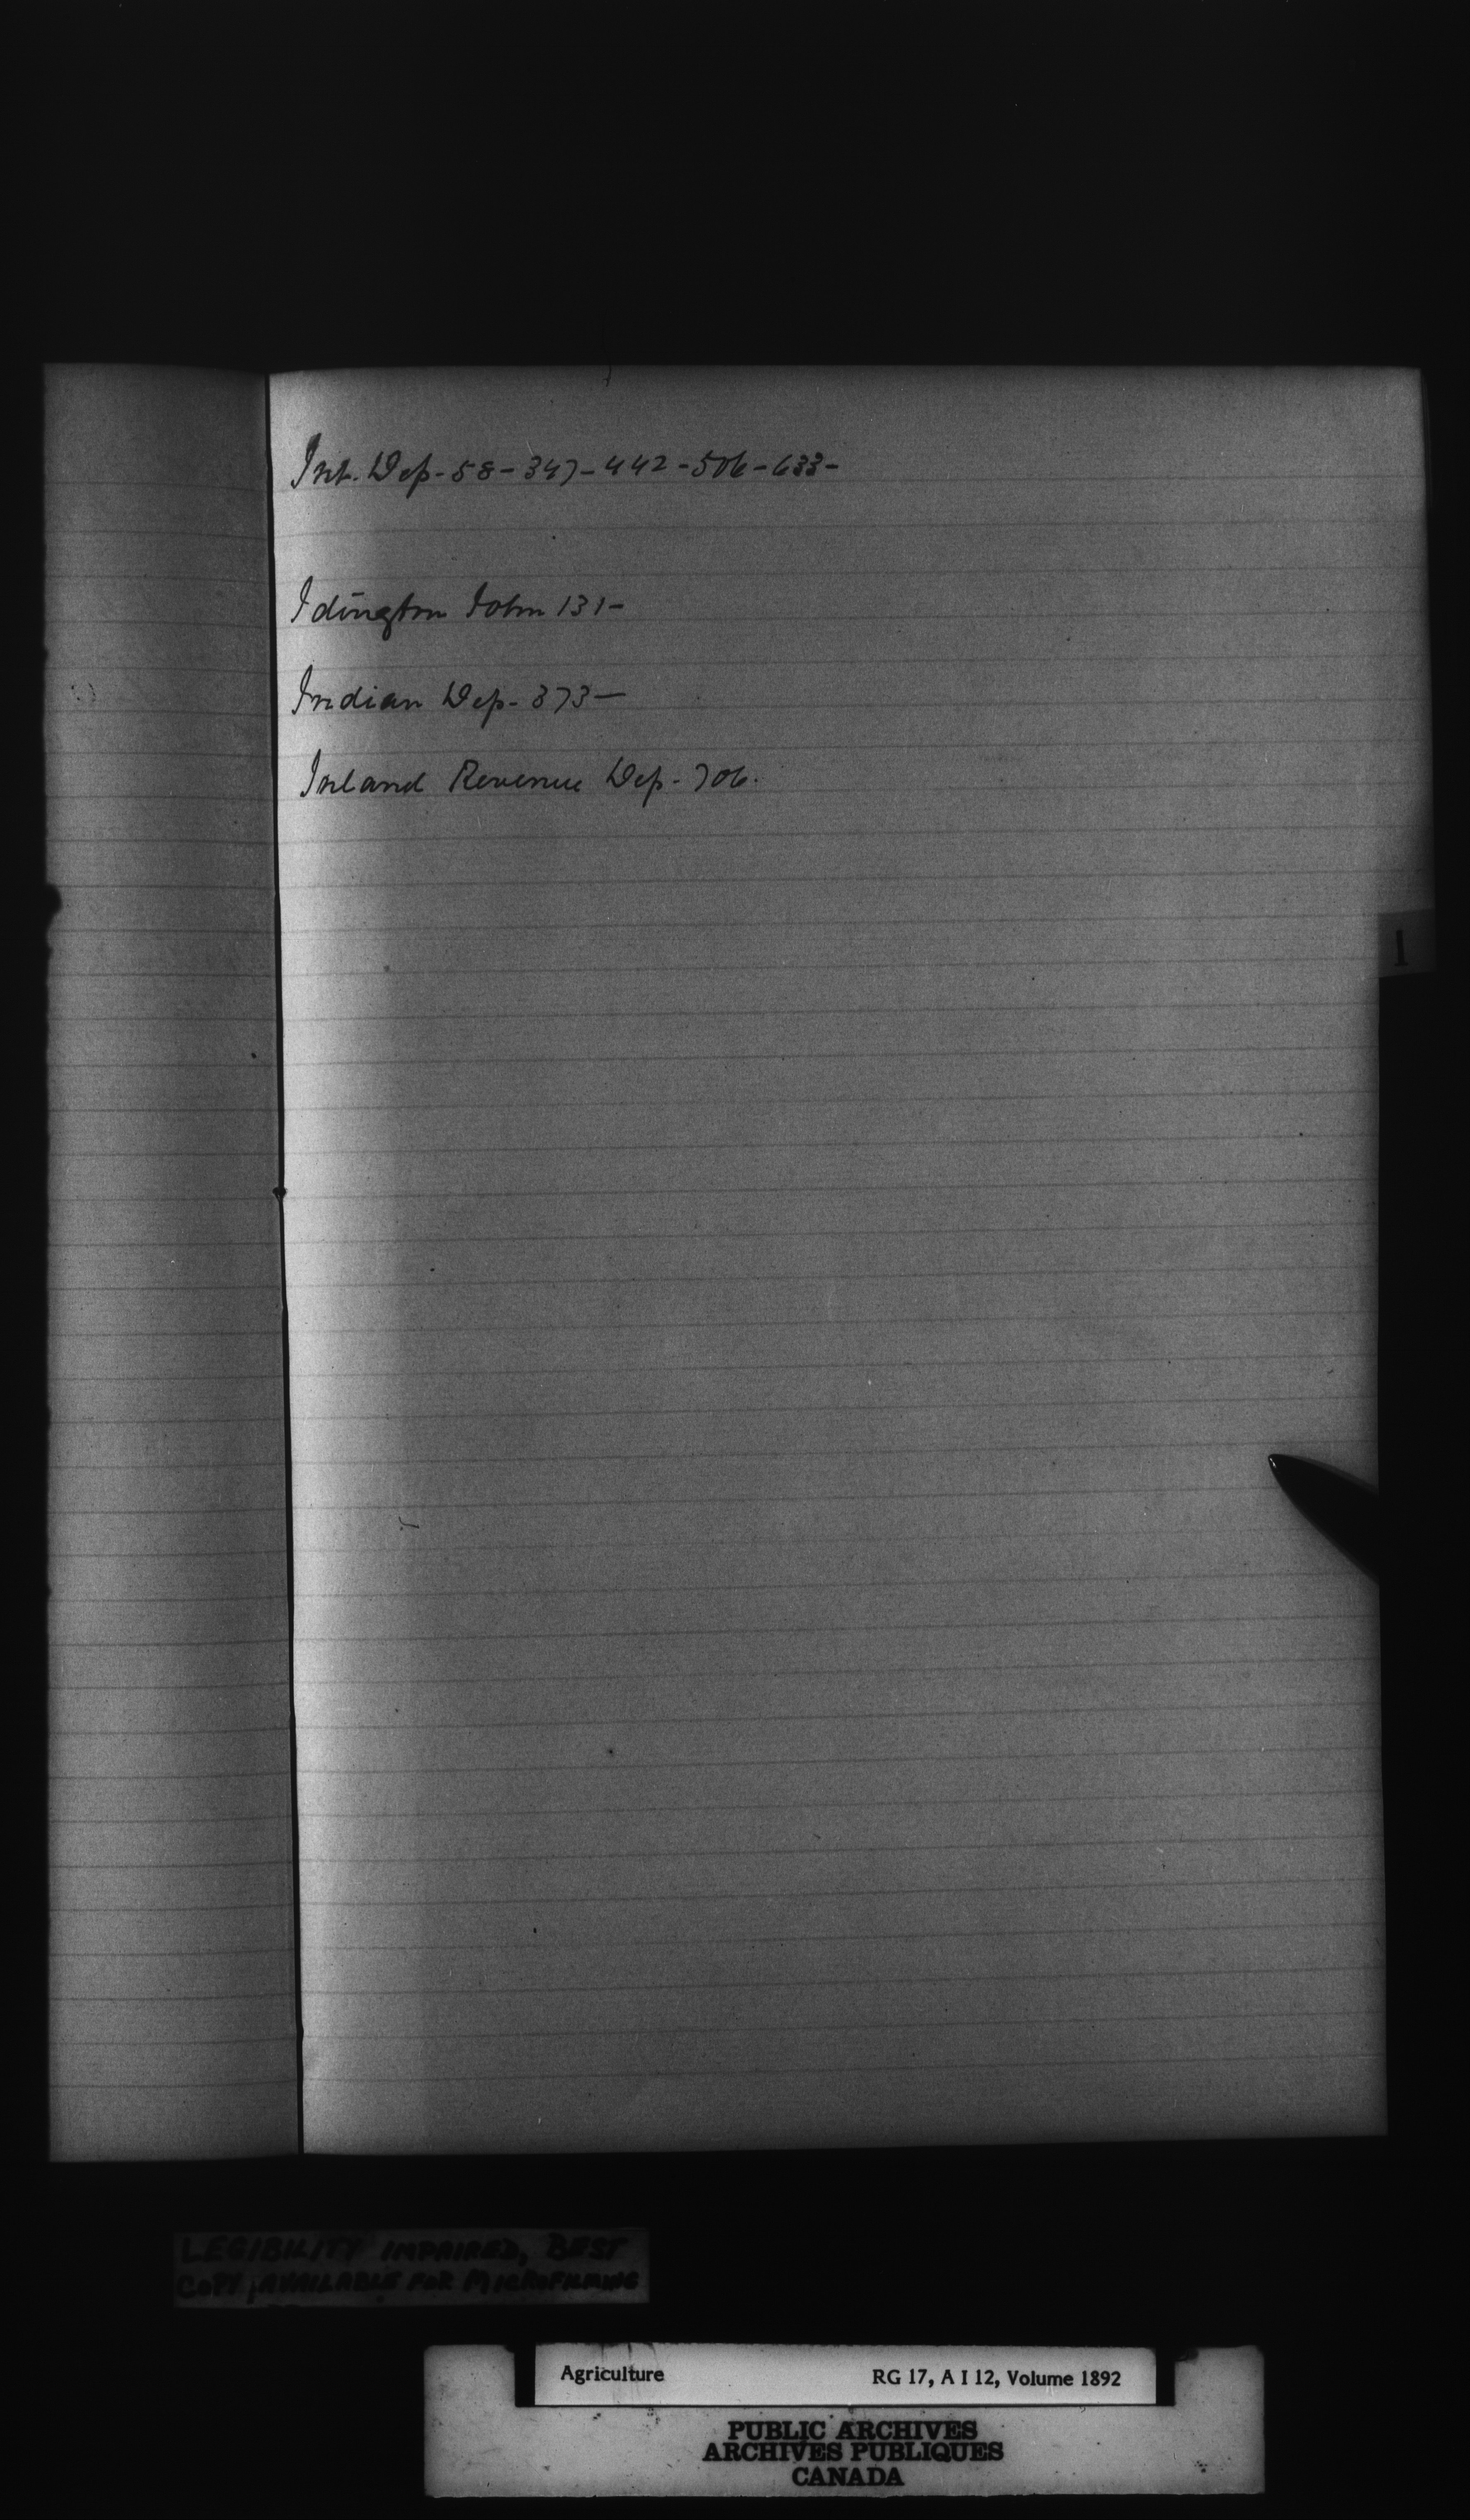 Int. Dep- 58-347-442-506-633-
Idington John 131-
Indian Dep- 373-
Inland Revenue Dep- 706.
I
LEGIBILITY IMPAIRED, BEST
COPY AVAILABLE FOR MICROFILMING
Agriculture RG 17, A I 12, Volume 1892
PUBLIC ARCHIVES
ARCHIVES PUBLIQUES
CANADA